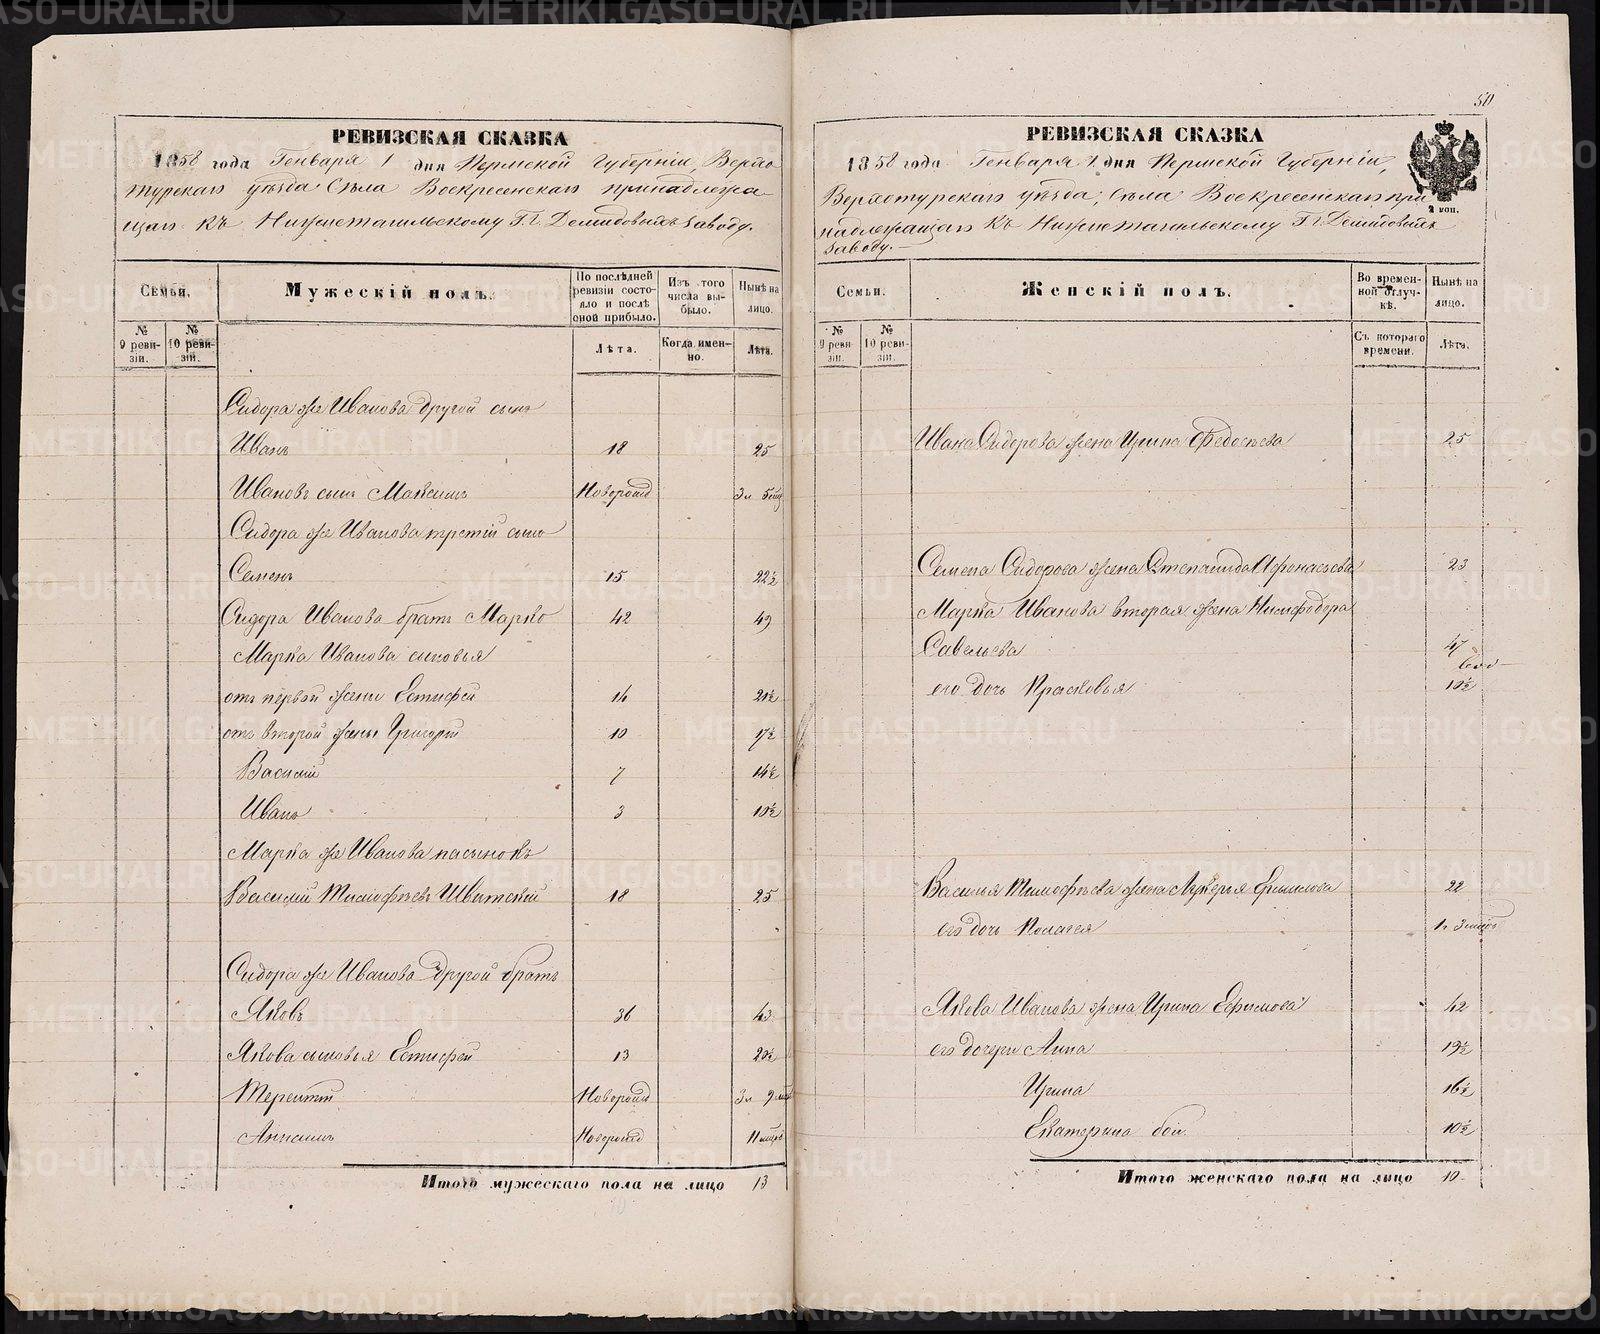 50
РЕВИЗСКАЯ СКАЗКА
1858 года Генваря 1 дня Пермской Губерніи, Верхо
турскаго уѣзда Села Воскресенскаго принадлежа-
щаго къ Нижнетагильскому Г.г. Демидовыхъ заводу.
Семьи.
Мужескій полъ.
По послѣдней ревизіи состояло и послѣ оной прибыло.
Изъ того числа выбыло.
Нынѣ на лицо.
№ 9 ревизіи.
№ 10 ревизіи.
Лѣта.
Когда именно.
Лѣта.
Сидора же Иванова другой сынъ
Иванъ 18 25
Ивановъ сынъ Максимъ Новорожд 3 л 5 мц
Сидора же Иванова третій сынъ
Семенъ 15 22½
Сидора Иванова братъ Марко 42 49
Марка Иванова сыновья
отъ первой жены Естифей 14 21½
отъ второй жены Григорій 10 17½
Василій 7 14½
Иванъ 3 10½
Марка же Иванова пасынокъ
Василій Тимофѣевъ Швитской 18 25
Сидора же Иванова другой братъ
Яковъ 36 43
Якова сыновья Естифей 13 20½
Терентій Новорожд 3 л 9 мц
Анисимъ Новорожд 11 мцовъ
Итого мужескаго пола на лицо 13
РЕВИЗСКАЯ СКАЗКА
1858 года Генваря 1 дня Пермской Губерніи,
Верхотурскаго уѣзда, Села Воскресенскаго при
надлежащаго къ Нижнетагильскому Г.г. Демидовыхъ
заводу.
2 коп.
Семьи.
Женскій полъ.
Во временной отлучкѣ.
Нынѣ на лицо.
№ 9 ревизіи.
№ 10 ревизіи.
Съ котораго времени.
Лѣта.
Ивана Сидорова жена Ирина Федосѣева 25
Семена Сидорова жена Степанида Афонасьева 23
Марка Иванова вторая жена Нимфодора
Савельева 47
его дочь Прасковья 10½
Василья Тимофѣева жена Лукерья Ермилова 22
его дочь Палагея 1 г 3 мцовъ
Якова Иванова жена Ирина Ефимова 42
его дочери Анна 19½
Ирина 16½
Екатерина 10½
Итого женскаго пола на лицо 10
METRIKI.GASO-URAL.RU